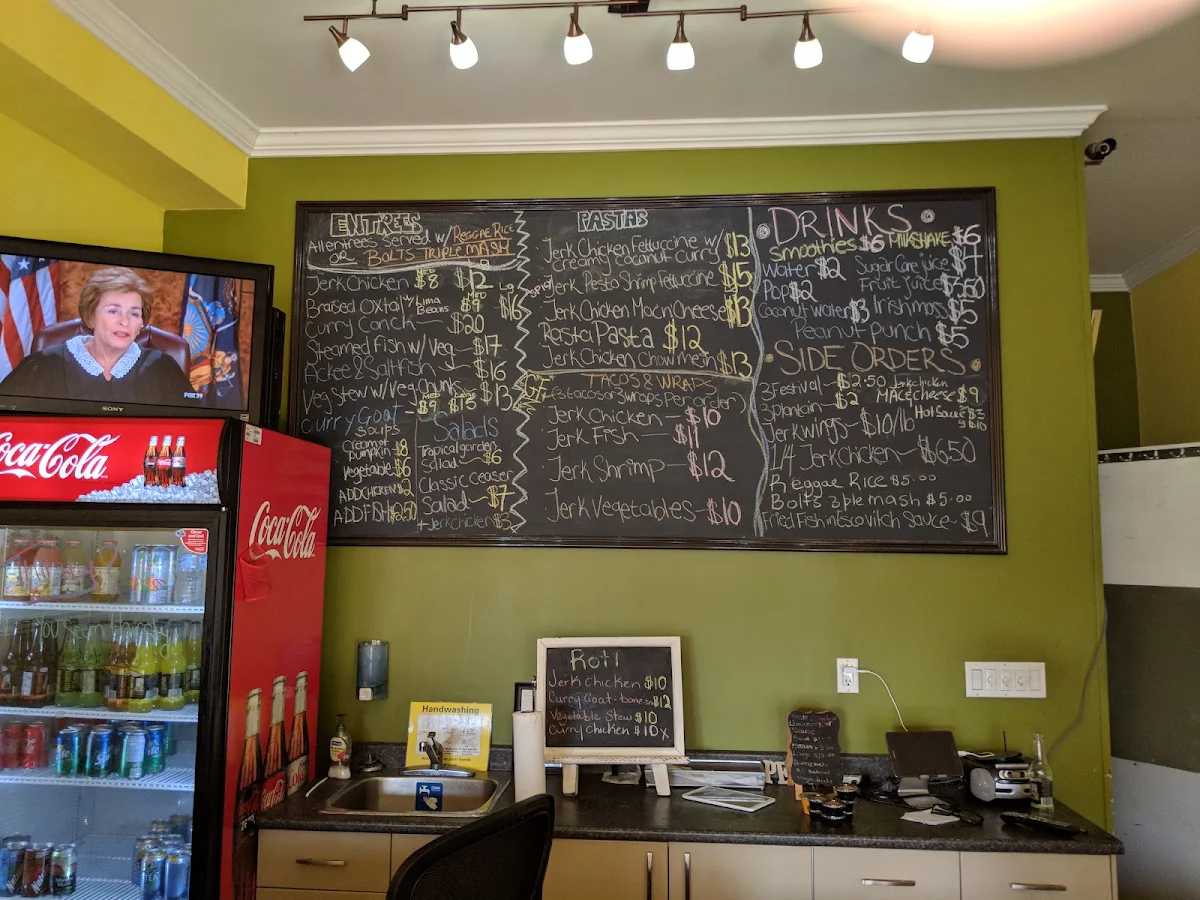 ENTREES
All entrees served w/ REGGAE RICE
OR BOLTS TRIPLE MASH
Jerk Chicken Med $8 $12
Braised Oxtail w/ Lima Beans Med $9 Lg $16
Curry Conch $20
Steamed Fish w/ Veg $17
Ackee & Saltfish $16
Veg Stew w/ Veg Chunks $13
Curry Goat Med $9 Large $15
SOUPS
Cream of pumpkin $8
Vegetable $6
ADD CHICKEN $2
ADD FISH $2.50
Salads
Tropical garden
Salad $6
Classic Ceaser
Salad $7
+ Jerk Chicken $5
PASTAS
Jerk Chicken Fettuccine w/ $13
Creamy Coconut Curry
Spicy Jerk Pesto Shrimp Fettuccine $15
Jerk Chicken Mac n Cheese $13
Rasta Pasta $12
Jerk Chicken Chowmein $13
TACOS & WRAPS
(3 tacos or 3 wraps per order)
Jerk Chicken $10
Jerk Fish $11
Jerk Shrimp $12
Jerk Vegetables $10
DRINKS
Smoothies $6 MILKSHAKE $6
Water $2 Sugar Cane juice $7
Pop $2 Fruit juice $3.50
Coconut water $3 Irish moss $5
Peanut punch $5
SIDE ORDERS
3 Festival $2.50 Jerk chicken
3 plantain $2 MAC & cheese $9
Jerk wings $10/lb Hot Sauce $3
1/4 Jerk Chicken $6.50
Reggae Rice $5.00
Bolts 3ple mash $5.00
Fried Fish in Scovitch Sauce $9
Roti
Jerk chicken $10
Curry Goat - bone in $12
Vegetable Stew $10
Curry chicken $10x
Handwashing
Coca-Cola
Coca-Cola
Coca-Cola
SONY
FOX 29